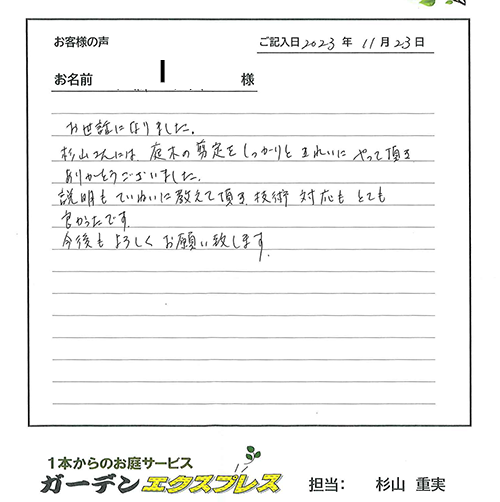 お客様の声 ご記入日 2023 年 11 月 23 日
お名前 I 様
お世話になりました。
杉山さんには 庭木の剪定をしっかりと きれいに やって頂き
ありがとうございました。
説明も ていねいに教えて頂き 技術 対応も とても
良かったです。
今後も よろしく お願い致します。
1本からのお庭サービス
ガーデンエクスプレス 担当: 杉山 重実